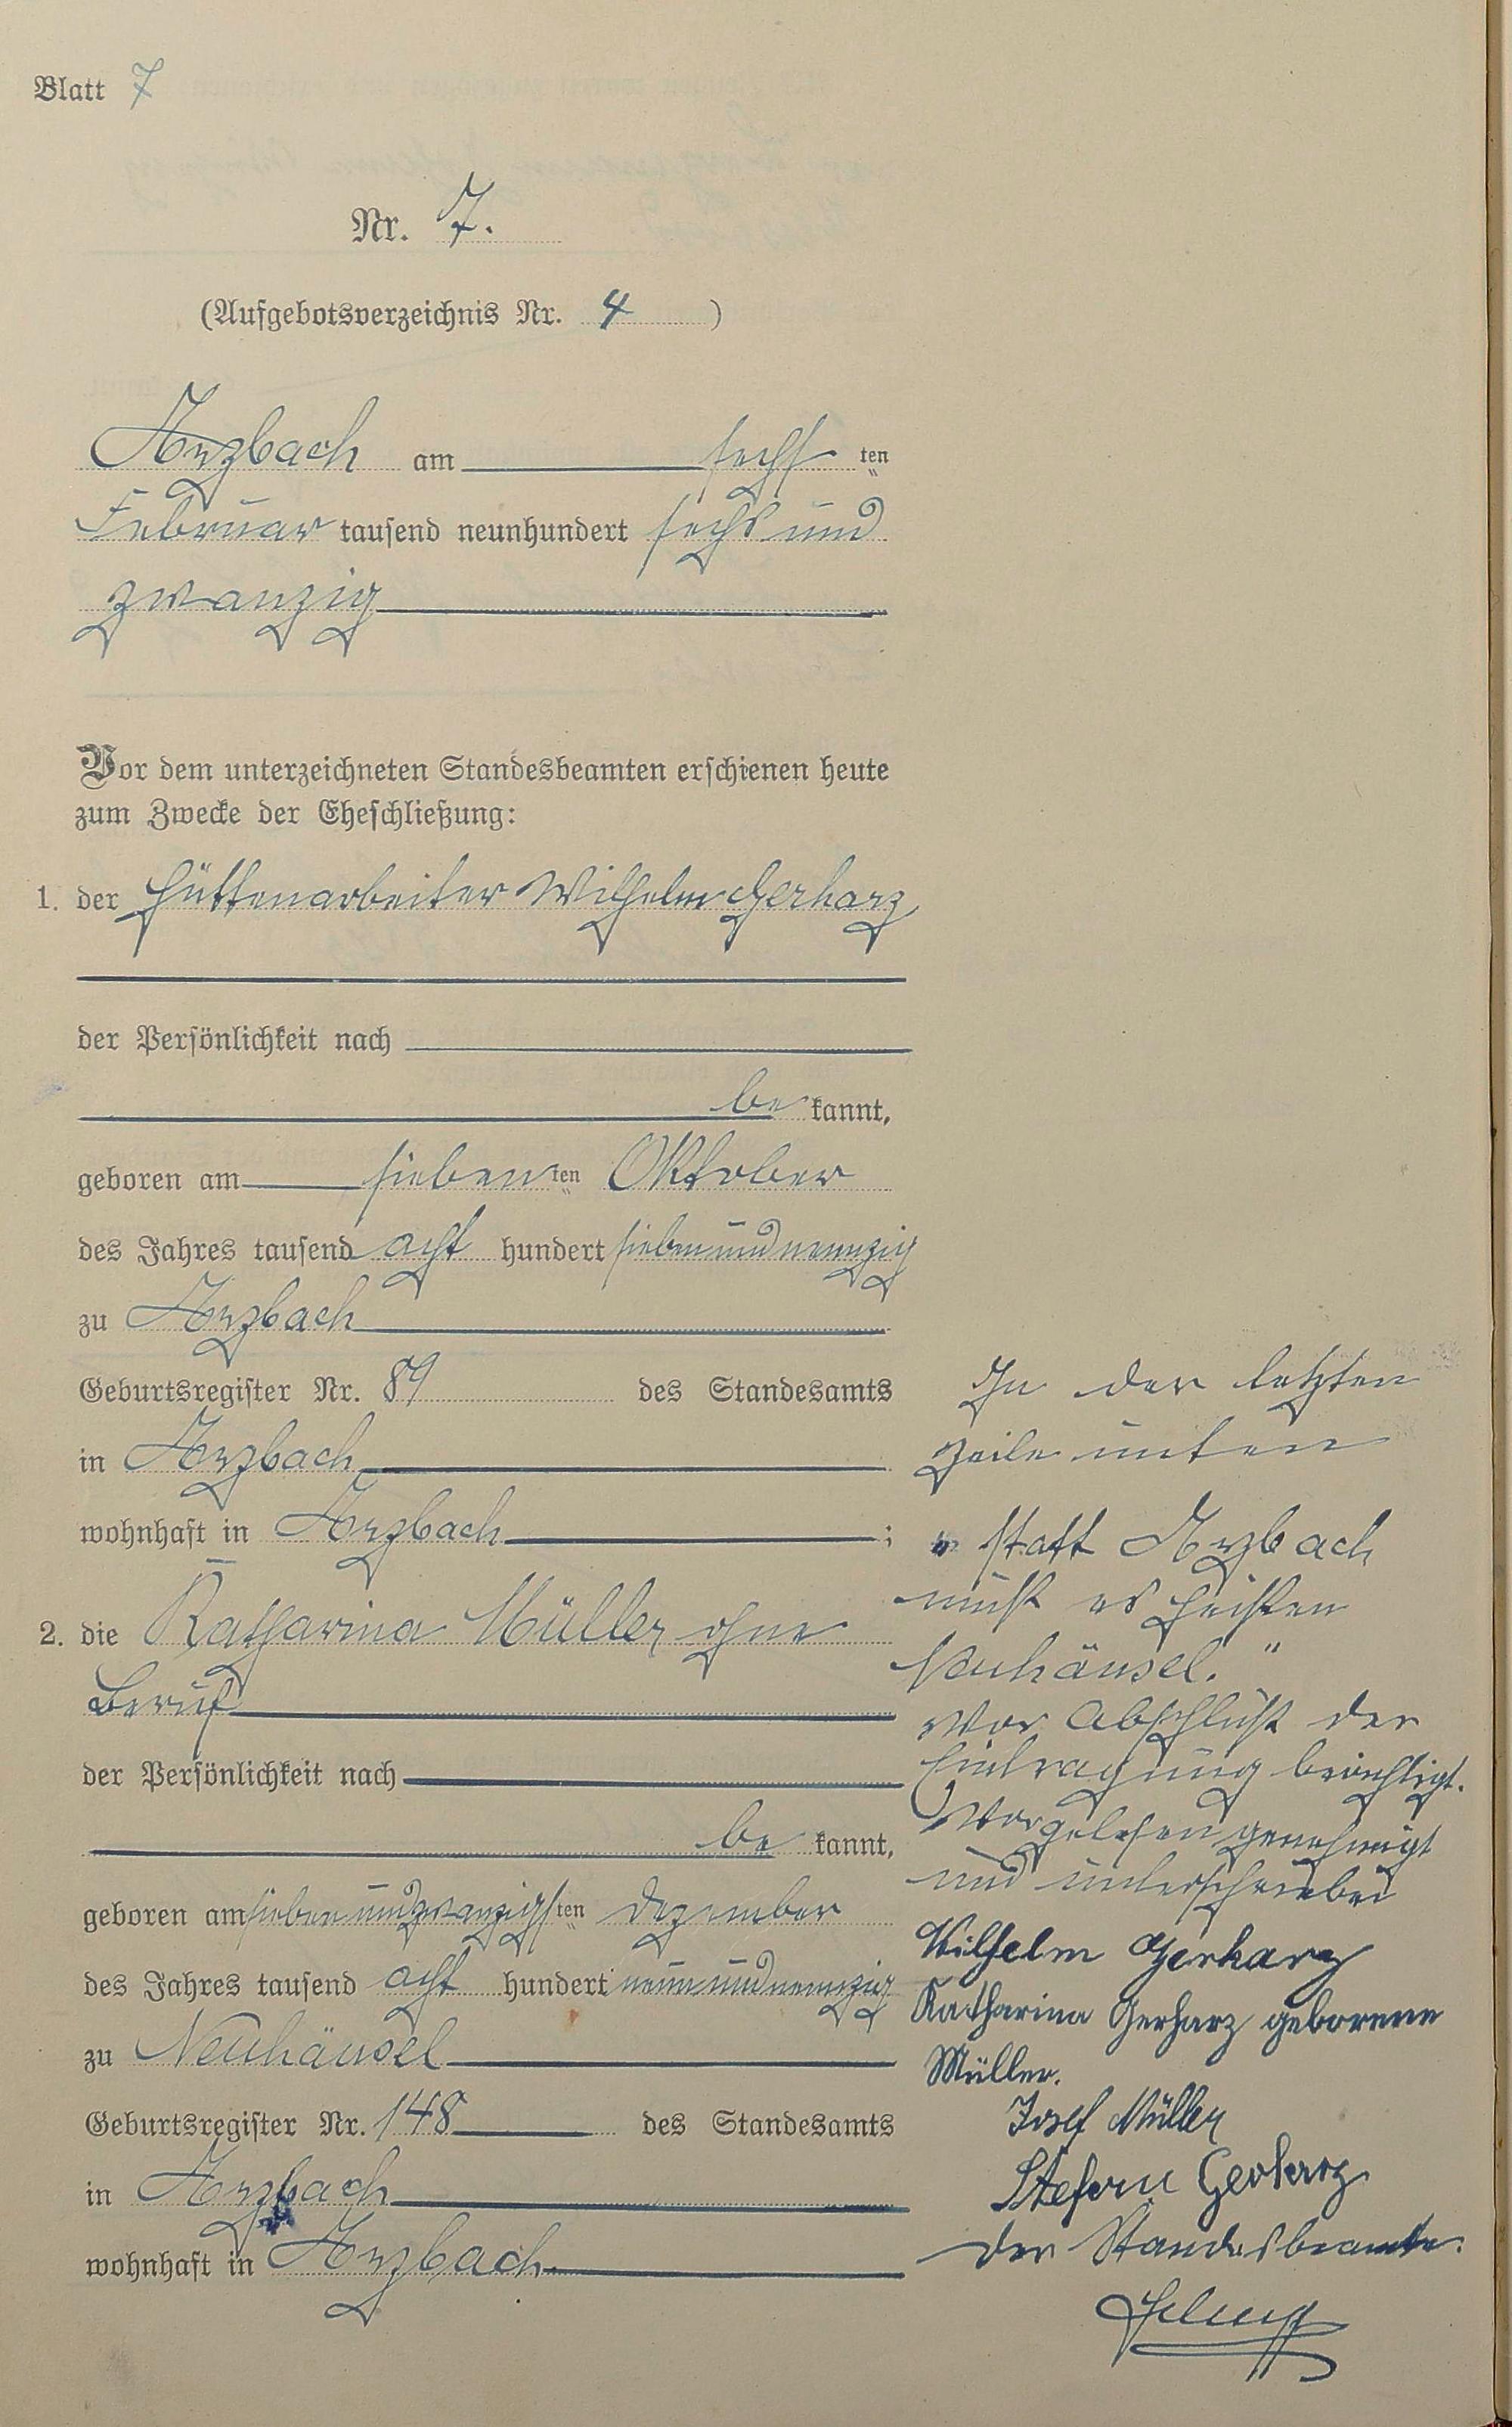 Blatt 7
Nr. 7.
(Aufgebotsverzeichnis Nr. 4 )
Arzbach am sechsten
Februar tausend neunhundert sechs und
zwanzig
Vor dem unterzeichneten Standesbeamten erschienen heute
zum Zwecke der Eheschließung:
1. der Hüttenarbeiter Wilhelm Gerharz
der Persönlichkeit nach
be kannt,
geboren am siebenten Oktober
des Jahres tausend acht hundert siebenundneunzig
zu Arzbach
Geburtsregister Nr. 89 des Standesamts
in Arzbach
wohnhaft in Arzbach ;
2. die Katharina Müller ohne
Beruf
der Persönlichkeit nach
be kannt,
geboren am siebenundzwanzigsten Dezember
des Jahres tausend acht hundert neunundneunzig
zu Neuhäusel
Geburtsregister Nr. 148 des Standesamts
in Arzbach
wohnhaft in Arzbach
In der letzten
Zeile unten
„ statt Arzbach
muß es heißen
Neuhäusel."
Vor Abschluß der
Eintragung berichtigt.
Vorgelesen genehmigt
und unterschrieben
Wilhelm Gerharz
Katharina Gerharz geborene
Müller.
Josef Müller
Stefan Gerharz
Der Standesbeamte.